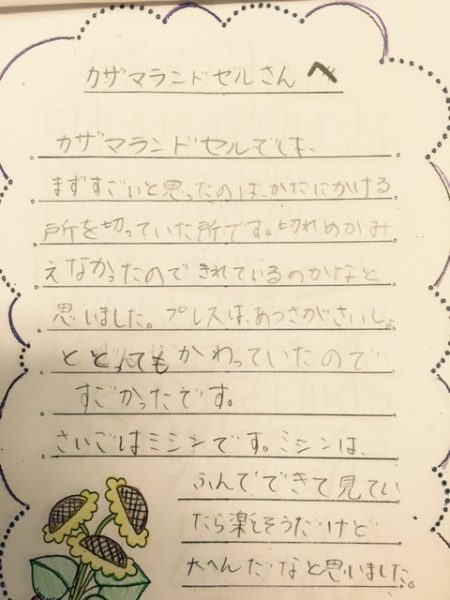 カザマランドセルさんへ
カザマランドセルでは、
まずすごいと思ったのは、かたにかける
所を切っていた所です。切れめがみ
えなかったのできれているのかなと
思いました。プレスは、あつさがさいしょ
ととってもかわっていたので
すごかったです。
さいごはミシンです。ミシンは、
ふんでできて見てい
たら楽しそうだけど
大へんだなと思いました。